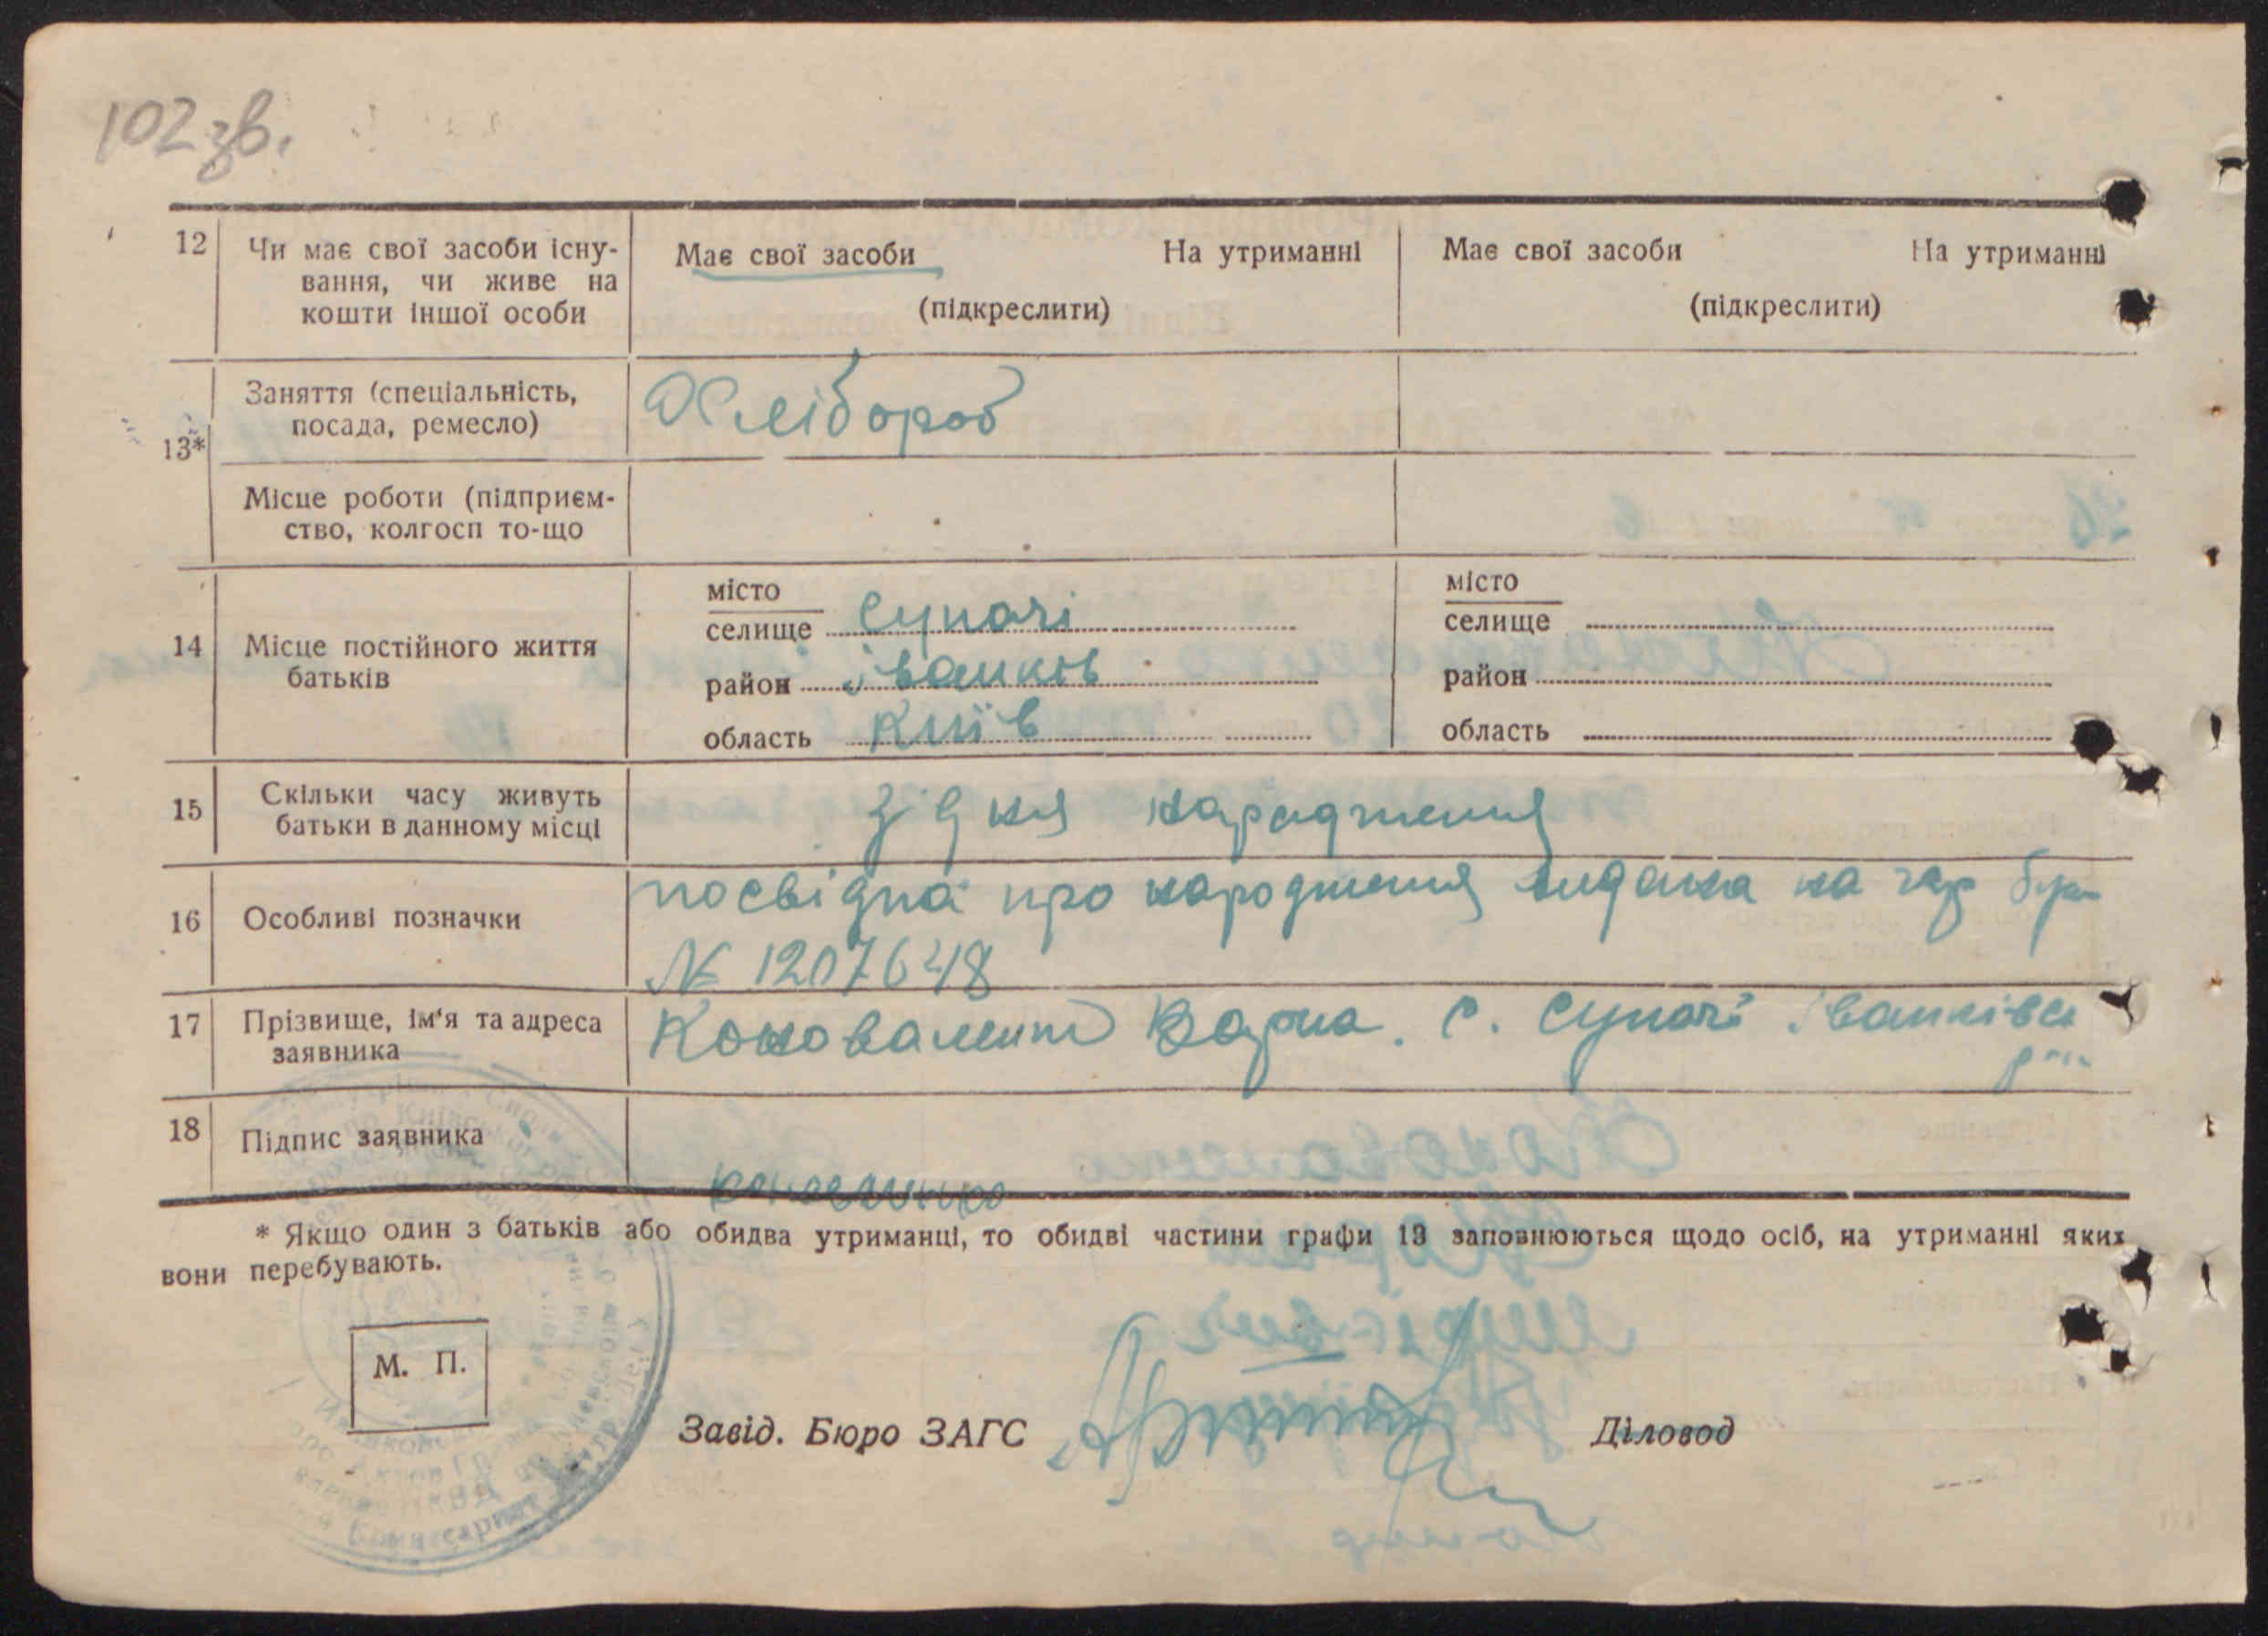 102 зв.
12 Чи має свої засоби існу- Має свої засоби На утриманні Має свої засоби На утриманні
вання, чи живе на
кошти іншої особи (підкреслити) (підкреслити)
13* Заняття (спеціальність, Хлібороб
посада, ремесло)
Місце роботи (підприєм-
ство, колгосп то-що
14 Місце постійного життя
батьків
місто місто
селище Супочі селище
район іванків район
область Київ область
15 Скільки часу живуть зі дня народження
батьки в данному місці
16 Особливі позначки посвідка про народження видана на
№ 1207648
17 Прізвище, ім'я та адреса Коноваленко с. Супочі іванківсь
заявника
18 Підпис заявника
коноваленко
* Якщо один з батьків або обидва утриманці, то обидві частини графи 13 заповнюються щодо осіб, на утриманні яких
вони перебувають.
М. П.
Завід. Бюро ЗАГС Діловод